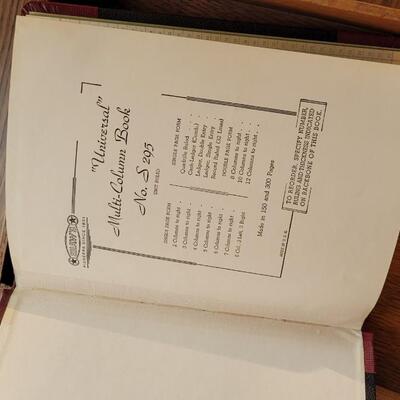 "Universal"
Multi-Column Book
No. S 295
UNIT RULED
SINGLE PAGE FORM
2 Columns to right . .
3 Columns to right . .
4 Columns to right . .
5 Columns to right . .
6 Columns to right . .
7 Columns to right . .
6 Col. 3 Left, 3 Right
SINGLE PAGE FORM
Quadrille Ruled . . . .
Cash-Ledger (Comb.)
Ledger, Double Entry . .
Ledger, Single Entry . .
Record Ruled (32 Lines)
DOUBLE PAGE FORM
8 Columns to right . . .
10 Columns to right . . .
12 Columns to right . . .
Made in 150 and 300 Pages
TO REORDER, SPECIFY NUMBER,
RULING AND THICKNESS INDICATED
ON BACKBONE OF THIS BOOK.
MADE IN U.S.A.